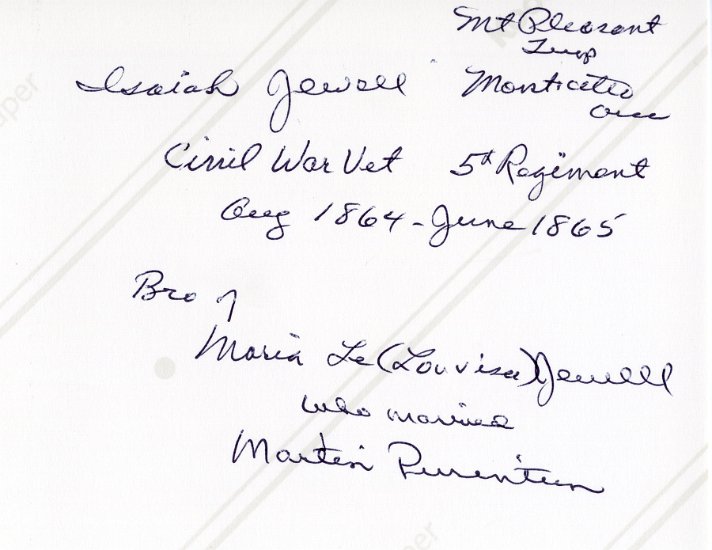 Mt Pleasant
Twp
Isaiah Jewell Monticello
Civil War Vet 5th Regiment
Aug 1864 - June 1865
Bro of
Maria Le (Louvisa) Jewell
who married
Martin Purintun
aper
er